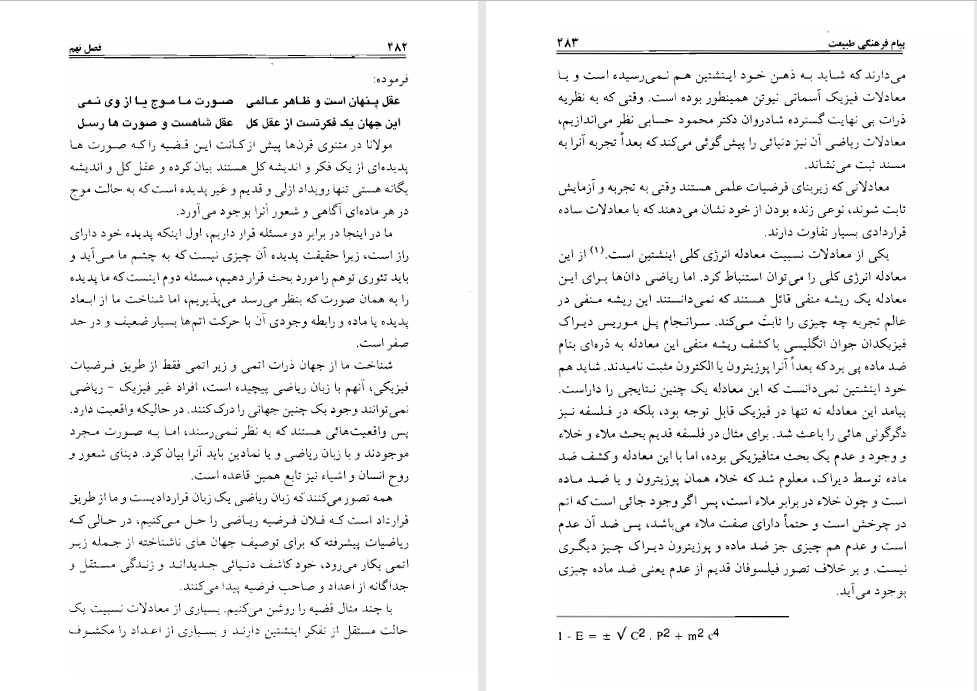 ۲۸۲ فصل نهم
فرموده:
عقل پنهان است و ظاهر عالمی صورت ما موج یا از وی نمی
این جهان یک فکرتست از عقل کل عقل شاهست و صورت ها رسل
مولانا در مثنوی قرن‌ها پیش از کانت این قضیه را که صورت ها
پدیده‌ای از یک فکر و اندیشه کل هستند بیان کرده و عقل کل و اندیشه
یگانه هستی تنها رویداد ازلی و قدیم و غیر پدیده است که به حالت موج
در هر ماده‌ای آگاهی و شعور آنرا بوجود می‌آورد.
ما در اینجا در برابر دو مسئله قرار داریم، اول اینکه پدیده خود دارای
راز است، زیرا حقیقت پدیده آن چیزی نیست که به چشم ما می‌آید و
باید تئوری توهم را مورد بحث قرار دهیم، مسئله دوم اینست که ما پدیده
را به همان صورت که بنظر می‌رسد می‌پذیریم، اما شناخت ما از ابعاد
پدیده یا ماده و رابطه وجودی آن با حرکت اتم‌ها بسیار ضعیف و در حد
صفر است.
شناخت ما از جهان ذرات اتمی و زیر اتمی فقط از طریق فرضیات
فیزیکی، آنهم با زبان ریاضی پیچیده است، افراد غیر فیزیک - ریاضی
نمی‌توانند وجود یک چنین جهانی را درک کنند. در حالیکه واقعیت دارد.
پس واقعیت‌هائی هستند که به نظر نمی‌رسند، اما به صورت مجرد
موجودند و با زبان ریاضی و یا نمادین باید آنرا بیان کرد. دینای شعور و
روح انسان و اشیاء نیز تابع همین قاعده است.
همه تصور می‌کنند که زبان ریاضی یک زبان قراردادیست و ما از طریق
قرارداد است که فلان فرضیه ریاضی را حل می‌کنیم، در حالی که
ریاضیات پیشرفته که برای توصیف جهان های ناشناخته از جمله زیر
اتمی بکار می‌رود، خود کاشف دنیائی جدیداند و زندگی مستقل و
جداگانه از اعداد و صاحب فرضیه پیدا می‌کنند.
با چند مثال قضیه را روشن می‌کنیم. بسیاری از معادلات نسبیت یک
حالت مستقل از تفکر اینشتین دارند و بسیاری از اعداد را مکشوف
پیام فرهنگی طبیعت ۲۸۳
می‌دارند که شاید به ذهن خود اینشتین هم نمی‌رسیده است و یا
معادلات فیزیک آسمانی نیوتن همینطور بوده است. وقتی که به نظریه
ذرات بی نهایت گسترده شادروان دکتر محمود حسابی نظر می‌اندازیم،
معادلات ریاضی آن نیز دنیائی را پیش‌گوئی می‌کند که بعداً تجربه آنرا به
مسند ثبت می‌نشاند.
معادلاتی که زیربنای فرضیات علمی هستند وقتی به تجربه و آزمایش
ثابت شوند، نوعی زنده بودن از خود نشان می‌دهند که با معادلات ساده
قراردادی بسیار تفاوت دارند.
یکی از معادلات نسبیت معادله انرژی کلی اینشتین است.(۱) از این
معادله انرژی کلی را می‌توان استنباط کرد. اما ریاضی دان‌ها برای این
معادله یک ریشه منفی قائل هستند که نمی‌دانستند این ریشه منفی در
عالم تجربه چه چیزی را ثابت می‌کند. سرانجام پل موریس دیراک
فیزیکدان جوان انگلیسی با کشف ریشه منفی این معادله به ذره‌ای بنام
ضد ماده پی برد که بعداً آنرا پوزیترون یا الکترون مثبت نامیدند. شاید هم
خود اینشتین نمی‌دانست که این معادله یک چنین نتایجی را داراست.
پیامد این معادله نه تنها در فیزیک قابل توجه بود، بلکه در فلسفه نیز
دگرگونی هائی را باعث شد. برای مثال در فلسفه قدیم بحث ملاء و خلاء
و وجود و عدم یک بحث متافیزیکی بوده، اما با این معادله و کشف ضد
ماده توسط دیراک، معلوم شد که خلاء همان پوزیترون و یا ضد ماده
است و چون خلاء در برابر ملاء است، پس اگر وجود جائی است که اتم
در چرخش است و حتماً دارای صفت ملاء می‌باشد، پس ضد آن عدم
است و عدم هم چیزی جز ضد ماده و پوزیترون دیراک چیز دیگری
نیست. و بر خلاف تصور فیلسوفان قدیم از عدم یعنی ضد ماده چیزی
بوجود می‌آید.
1 - E = ± √ C2 . P2 + m2 c4